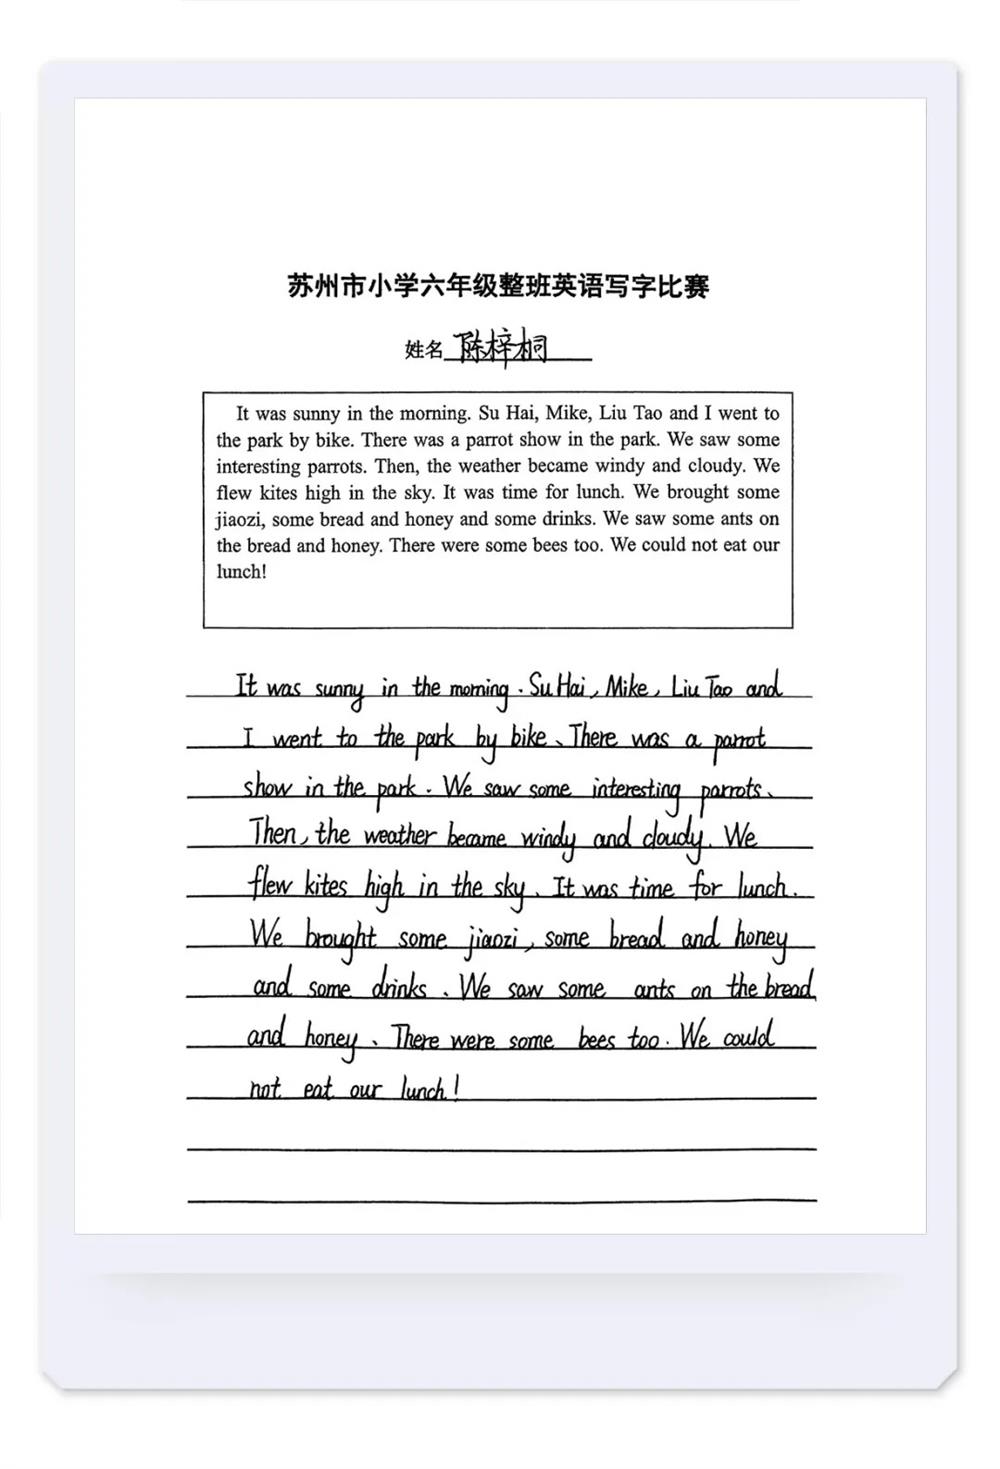 苏州市小学六年级整班英语写字比赛
姓名 陈梓桐
It was sunny in the morning. Su Hai, Mike, Liu Tao and I went to
the park by bike. There was a parrot show in the park. We saw some
interesting parrots. Then, the weather became windy and cloudy. We
flew kites high in the sky. It was time for lunch. We brought some
jiaozi, some bread and honey and some drinks. We saw some ants on
the bread and honey. There were some bees too. We could not eat our
lunch!
It was sunny in the morning. Su Hai, Mike, Liu Tao and
I went to the park by bike、There was a parrot
show in the park. We saw some interesting parrots、
Then, the weather became windy and cloudy. We
flew kites high in the sky. It was time for lunch.
We brought some jiaozi, some bread and honey
and some drinks、We saw some ants on the bread
and honey、There were some bees too. We could
not eat our lunch!